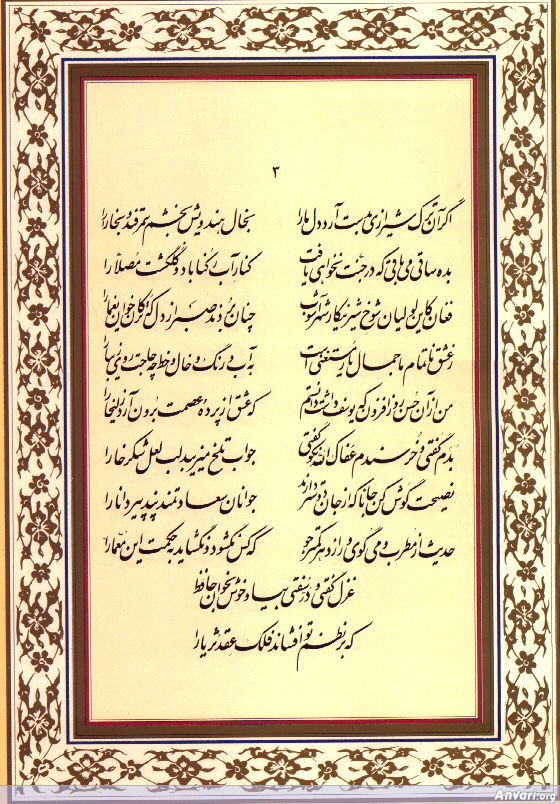 ۳
اگر آن ترک شیرازی بدست آرد دل ما را بخال هندویش بخشم سمرقند و بخارا را
بده ساقی می باقی که در جنت نخواهی یافت کنار آب رکناباد و گلگشت مصلّا را
فغان کاین لولیان شوخ شیرینکار شهرآشوب چنان بردند صبر از دل که ترکان خوان یغما را
ز عشق ناتمام ما جمال یار مستغنی است به آب و رنگ و خال و خط چه حاجت روی زیبا را
من از آن حسن روزافزون که یوسف داشت دانستم که عشق از پرده عصمت برون آرد زلیخا را
بدم گفتی و خرسندم عفاک الله نکو گفتی جواب تلخ میزیبد لب لعل شکرخا را
نصیحت گوش کن جانا که از جان دوستر دارند جوانان سعادتمند پند پیر دانا را
حدیث از مطرب و می گوی و راز دهر کمتر جو که کس نگشود و نگشاید به حکمت این معمّا را
غزل گفتی و در سفتی بیا و خوش بخوان حافظ
که بر نظم تو افشاند فلک عقد ثریا را
Anvari.org